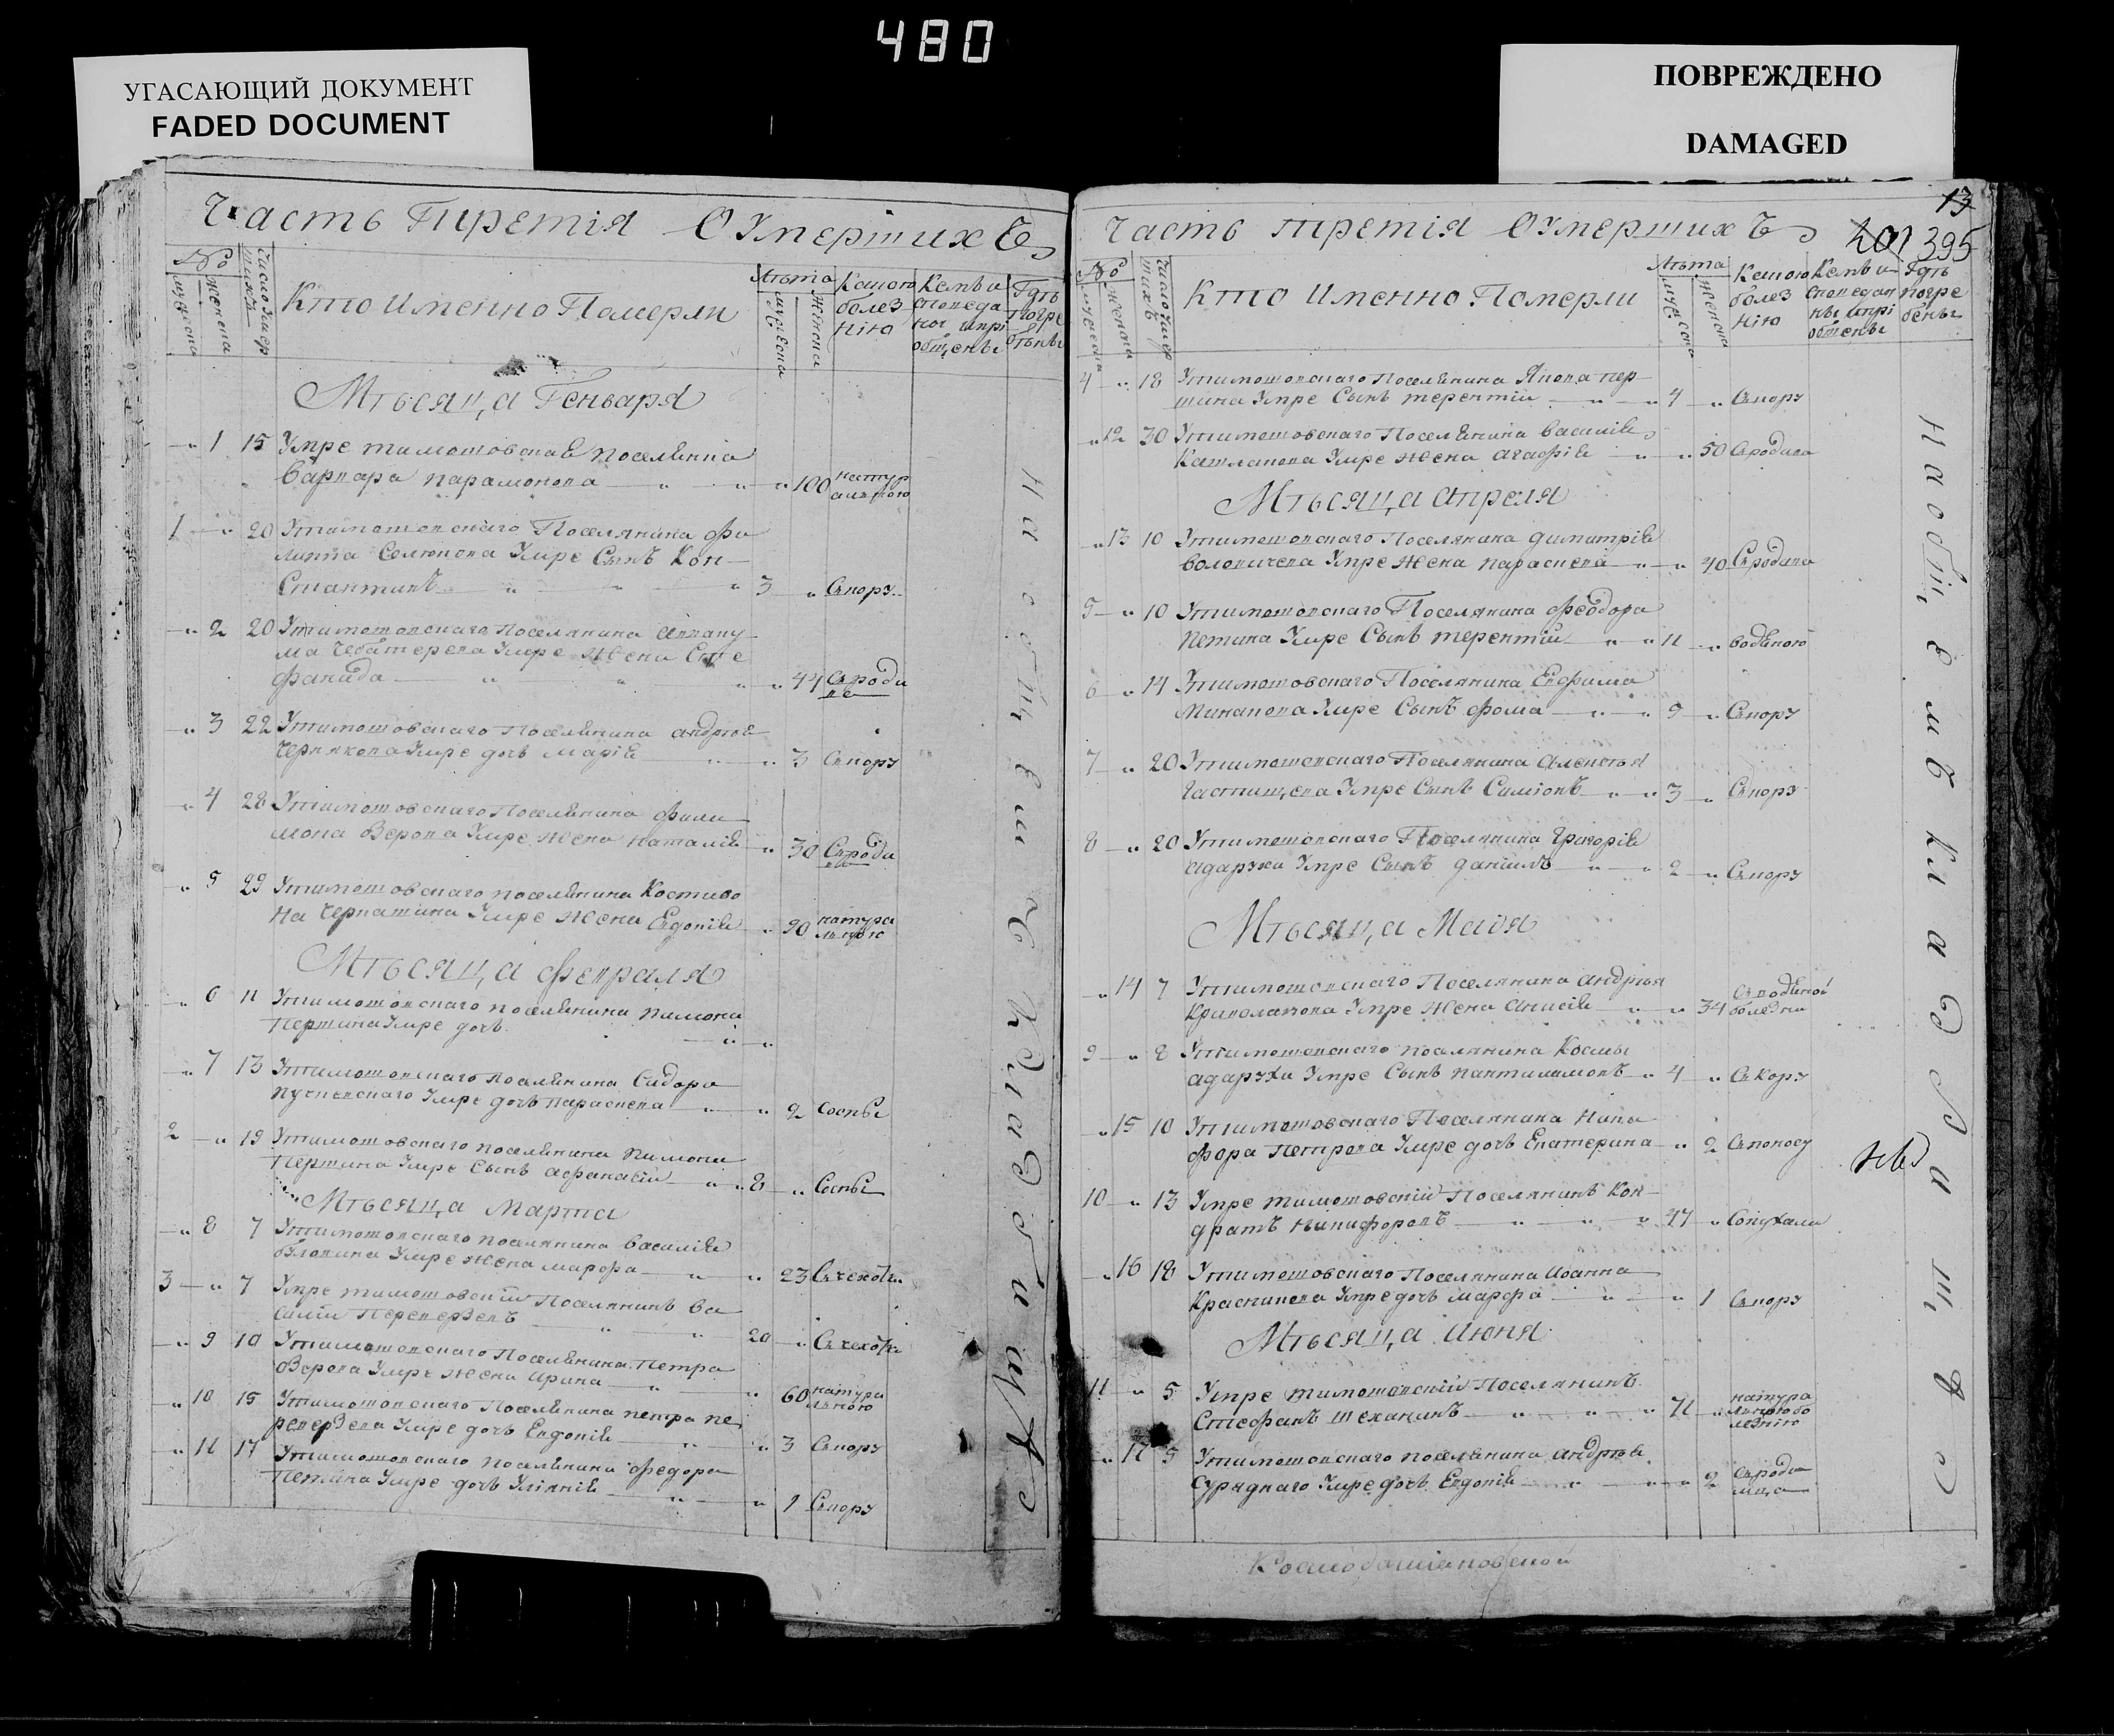 480
УГАСАЮЩИЙ ДОКУМЕНТ
FADED DOCUMENT
ПОВРЕЖДЕНО
DAMAGED
Часть Третія О Умершихъ
№
мужеска
женска
Число умер
Кто Именно Померли
Лѣта
мужеска
женска
Какою болез нію
Кемъ и споведа ны и прі общены
Гдѣ погре бены
Мѣсяца Генваря
1 15 Умре тимошовская поселянка
варвара парамонова 100 натур альною
1 20 У тимошовскаго Поселянина фи
липпа Селюкова Умре Сынъ Кон
стантинъ 3 Скору
2 20 У тимошовскаго Поселянина
Умре жена Сте
фанида 44 Сроди
3 22 У тимошовскаго Поселянина андрѣя
Чернякова Умре дочь марія 3 Скору
4 28 У тимошовскаго Поселянина фили
мона Зерова Умре жена наталія 30 Сроди
5 29 У тимошовскаго поселянина
Умре жена Евдокія 90 натура льною
Мѣсяца февраля
6 11 У тимошовскаго поселянина пимона
Першина Умре дочь
7 13 У тимошовскаго поселянина Сидора
Умре дочь параскева 2 Соспы
2 19 У тимошовскаго поселянина пимона
Першина Умре Сынъ афанасій 8 Соспы
Мѣсяца Марта
8 7 У тимошовскаго поселянина василія
Умре жена марфа 23 Счехотки
3 7 Умре тимошовскій Поселянинъ ва
силій Перевервевъ 20 Счехотки
9 10 У тимошовскаго Поселянина Петра
Зерова Умре жена ирина 60 натура льною
10 15 У тимошовскаго Поселянина петра пе
Умре дочь Евдокія 3 Скору
11 17 У тимошовскаго поселянина федора
Петина Умре дочь 1 Скору
На общемъ кладбищѣ
Часть третія О Умершихъ
13
401 395
№
мужеска
женска
Кто Именно Померли
Лѣта
мужеска
женска
Какою болез нію
Кемъ и споведан ны и прі общены
Гдѣ погре бены
4 18 У тимошовскаго Поселянина Якова пер
шина Умре Сынъ терентій 4 Скору
12 30 У тимошовскаго Поселянина василія
Умре жена агафія 50 Сродива
Мѣсяца апреля
13 10 У тимошовскаго Поселянина димитрія
Умре жена параскева 40 Сродива
5 10 У тимошовскаго Поселянина феодора
Петина Умре Сынъ терентій 11 водяной
6 14 У тимошовскаго Поселянина Ефима
Минакова Умре Сынъ фома 9 Скору
7 20 У тимошовскаго Поселянина алексѣя
Частищева Умре Сынъ Симіонъ 3 Скору
8 20 У тимошовскаго Поселянина Григорія
адарука Умре Сынъ даніилъ 2 Скору
Мѣсяца Маія
14 7 У тимошовскаго Поселянина андрѣя
Криволапова Умре жена анисія 34 Сводяной болезни
9 8 У тимошовскаго поселянина Космы
адаруха Умре Сынъ пантилимонъ 4 Скору
15 10 У тимошовскаго Поселянина Ники
фора Петрова Умре дочь Екатерина 2 Споносу
10 13 Умре тимошовскій Поселянинъ Кон
дратъ никифоровъ 47 Сопухали
16 18 У тимошовскаго Поселянина иоанна
Красникова Умре дочь марфа 1 Скору
Мѣсяца июня
11 5 Умре тимошовскій Поселянинъ
Стефанъ шеханинъ 71 натура льною бо лезнію
17 5 У тимошовскаго поселянина андрѣя
Сурядного Умре дочь Евдокія 2 Сроди мца
На общемъ кладбищѣ
Космодаміановской